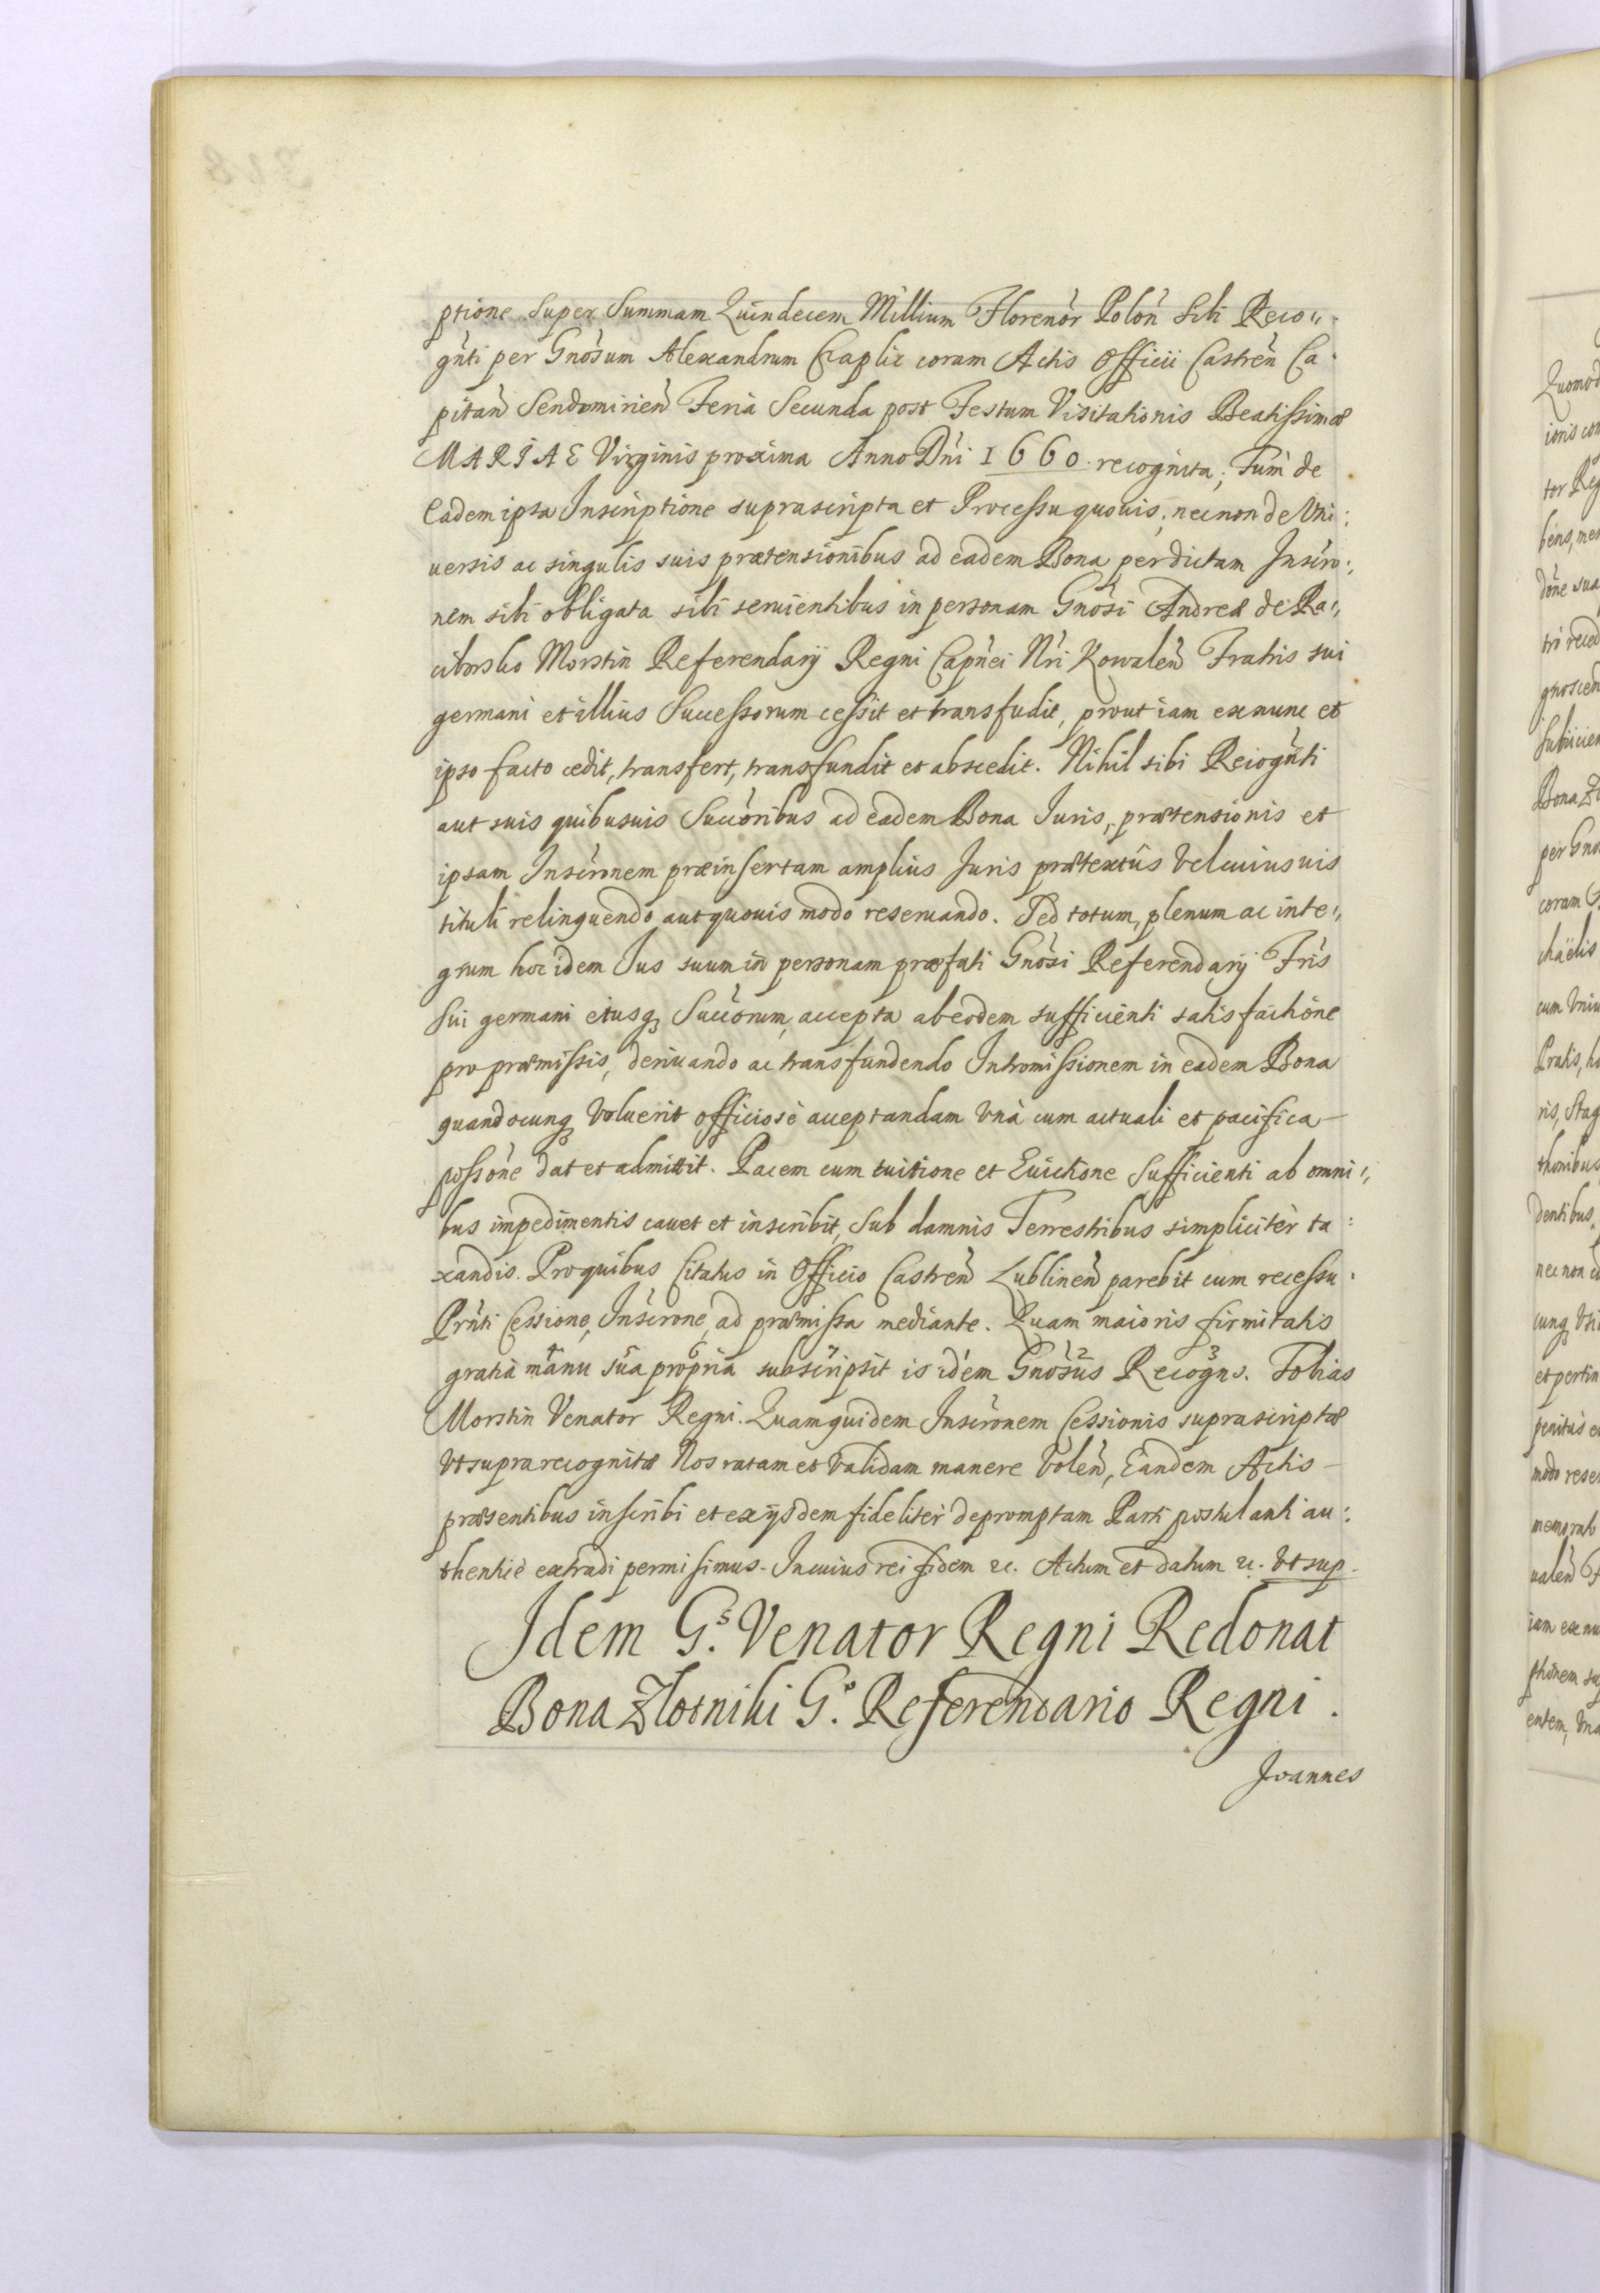 ptione super Summam Quindecem Millium Florenor̀ Polon̄ sibi Reco,,
gn̄ti per Gnòsum Alexandrum Czaplic coram Actis Officii Castren̄ Ca.
pitan̄ Sendomirien̄ Feria Secunda post Festum Visitationis Beatissimæ
MARIAE Virginis proxima Anno Dn̄i 1660. recognita; Tum de
Eadem ipsa Inscriptione suprascripta et Processu quouis, necnon de Vni:
uersis ac singulis suis prætensionibus ad eadem Bona per dictam Inscr̀o:,
nem sibi obligata sibi seruientibus in personam Gnòsi Andreæ de Ra,,
ciborsko Morstin Referendarij Regni Capn̄ei Nr̄i Kowalen̄ Fratris sui
germani et illius Successorum cessit et transfudit, prout iam ex nunc et
ipso facto cedit, transfert, transfundit et abscedit. Nihil sibi Recogn̄ti
aut suis quibusuis Succòribus ad eadem Bona Juris, prætensionis et
ipsam Inscr̀onem præinsertam amplius Juris prætextûs vel cuiusuis
tituli relinquendo aut quouis modo reseruando. Sed totum, plenum ac inte,,
grum hoc idem Jus suum in personam præfati Gnòsi Referendarij Fr̄is
sui germani eiusq Succòrum, accepta ab eodem sufficienti satisfactione
pro præmissis, deriuando ac transfundendo Intromissionem in eadem Bona
quandocunq voluerit officiosè acceptandam vnà cum actuali et pacifica
possòne dat et admittit. Pacem cum tuitione et Euictione sufficienti ab omni,,
bus impedimentis cauet et inscribit, Sub damnis Terrestribus simplicitèr ta:
xandis. Pro quibus Citatus in Officio Castren̄ Lublinen̄ parebit cum recessu.
Pr̄nti Cessione, Inscr̀one, ad præmissa mediante. Quam maioris firmitatis
gratià manu sua propria subscripsit is idem Gnòsus Recogns. Tobias
Morstin Venator Regni. Quamquidem Inscr̀onem Cessionis suprascriptæ
vt supra recognitæ Nos ratam et validam manere volen̄, Eandem Actis
præsentibus inscribi et ex ijsdem fidelitèr depromptam Parti postulanti au:
thenticè extradi permisimus. In cuius rei fidem &c. Actum et datum &c. vt sup.
Idem G.s Venator Regni Redonat
Bona Złotniki G.o Referendario Regni.
Joannes